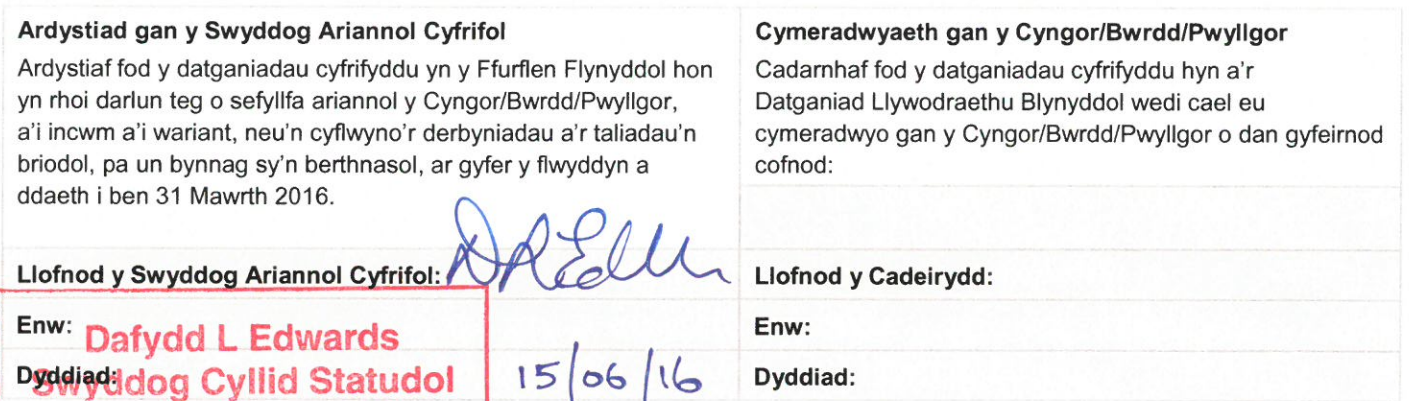 Ardystiad gan y Swyddog Ariannol Cyfrifol
Ardystiaf fod y datganiadau cyfrifyddu yn y Ffurflen Flynyddol hon
yn rhoi darlun teg o sefyllfa ariannol y Cyngor/Bwrdd/Pwyllgor,
a'i incwm a'i wariant, neu'n cyflwyno'r derbyniadau a'r taliadau'n
briodol, pa un bynnag sy'n berthnasol, ar gyfer y flwyddyn a
ddaeth i ben 31 Mawrth 2016.
Llofnod y Swyddog Ariannol Cyfrifol:
Enw: Dafydd L Edwards
Dyddiad:
Swyddog Cyllid Statudol
15/06/16
Cymeradwyaeth gan y Cyngor/Bwrdd/Pwyllgor
Cadarnhaf fod y datganiadau cyfrifyddu hyn a'r
Datganiad Llywodraethu Blynyddol wedi cael eu
cymeradwyo gan y Cyngor/Bwrdd/Pwyllgor o dan gyfeirnod
cofnod:
Llofnod y Cadeirydd:
Enw:
Dyddiad: